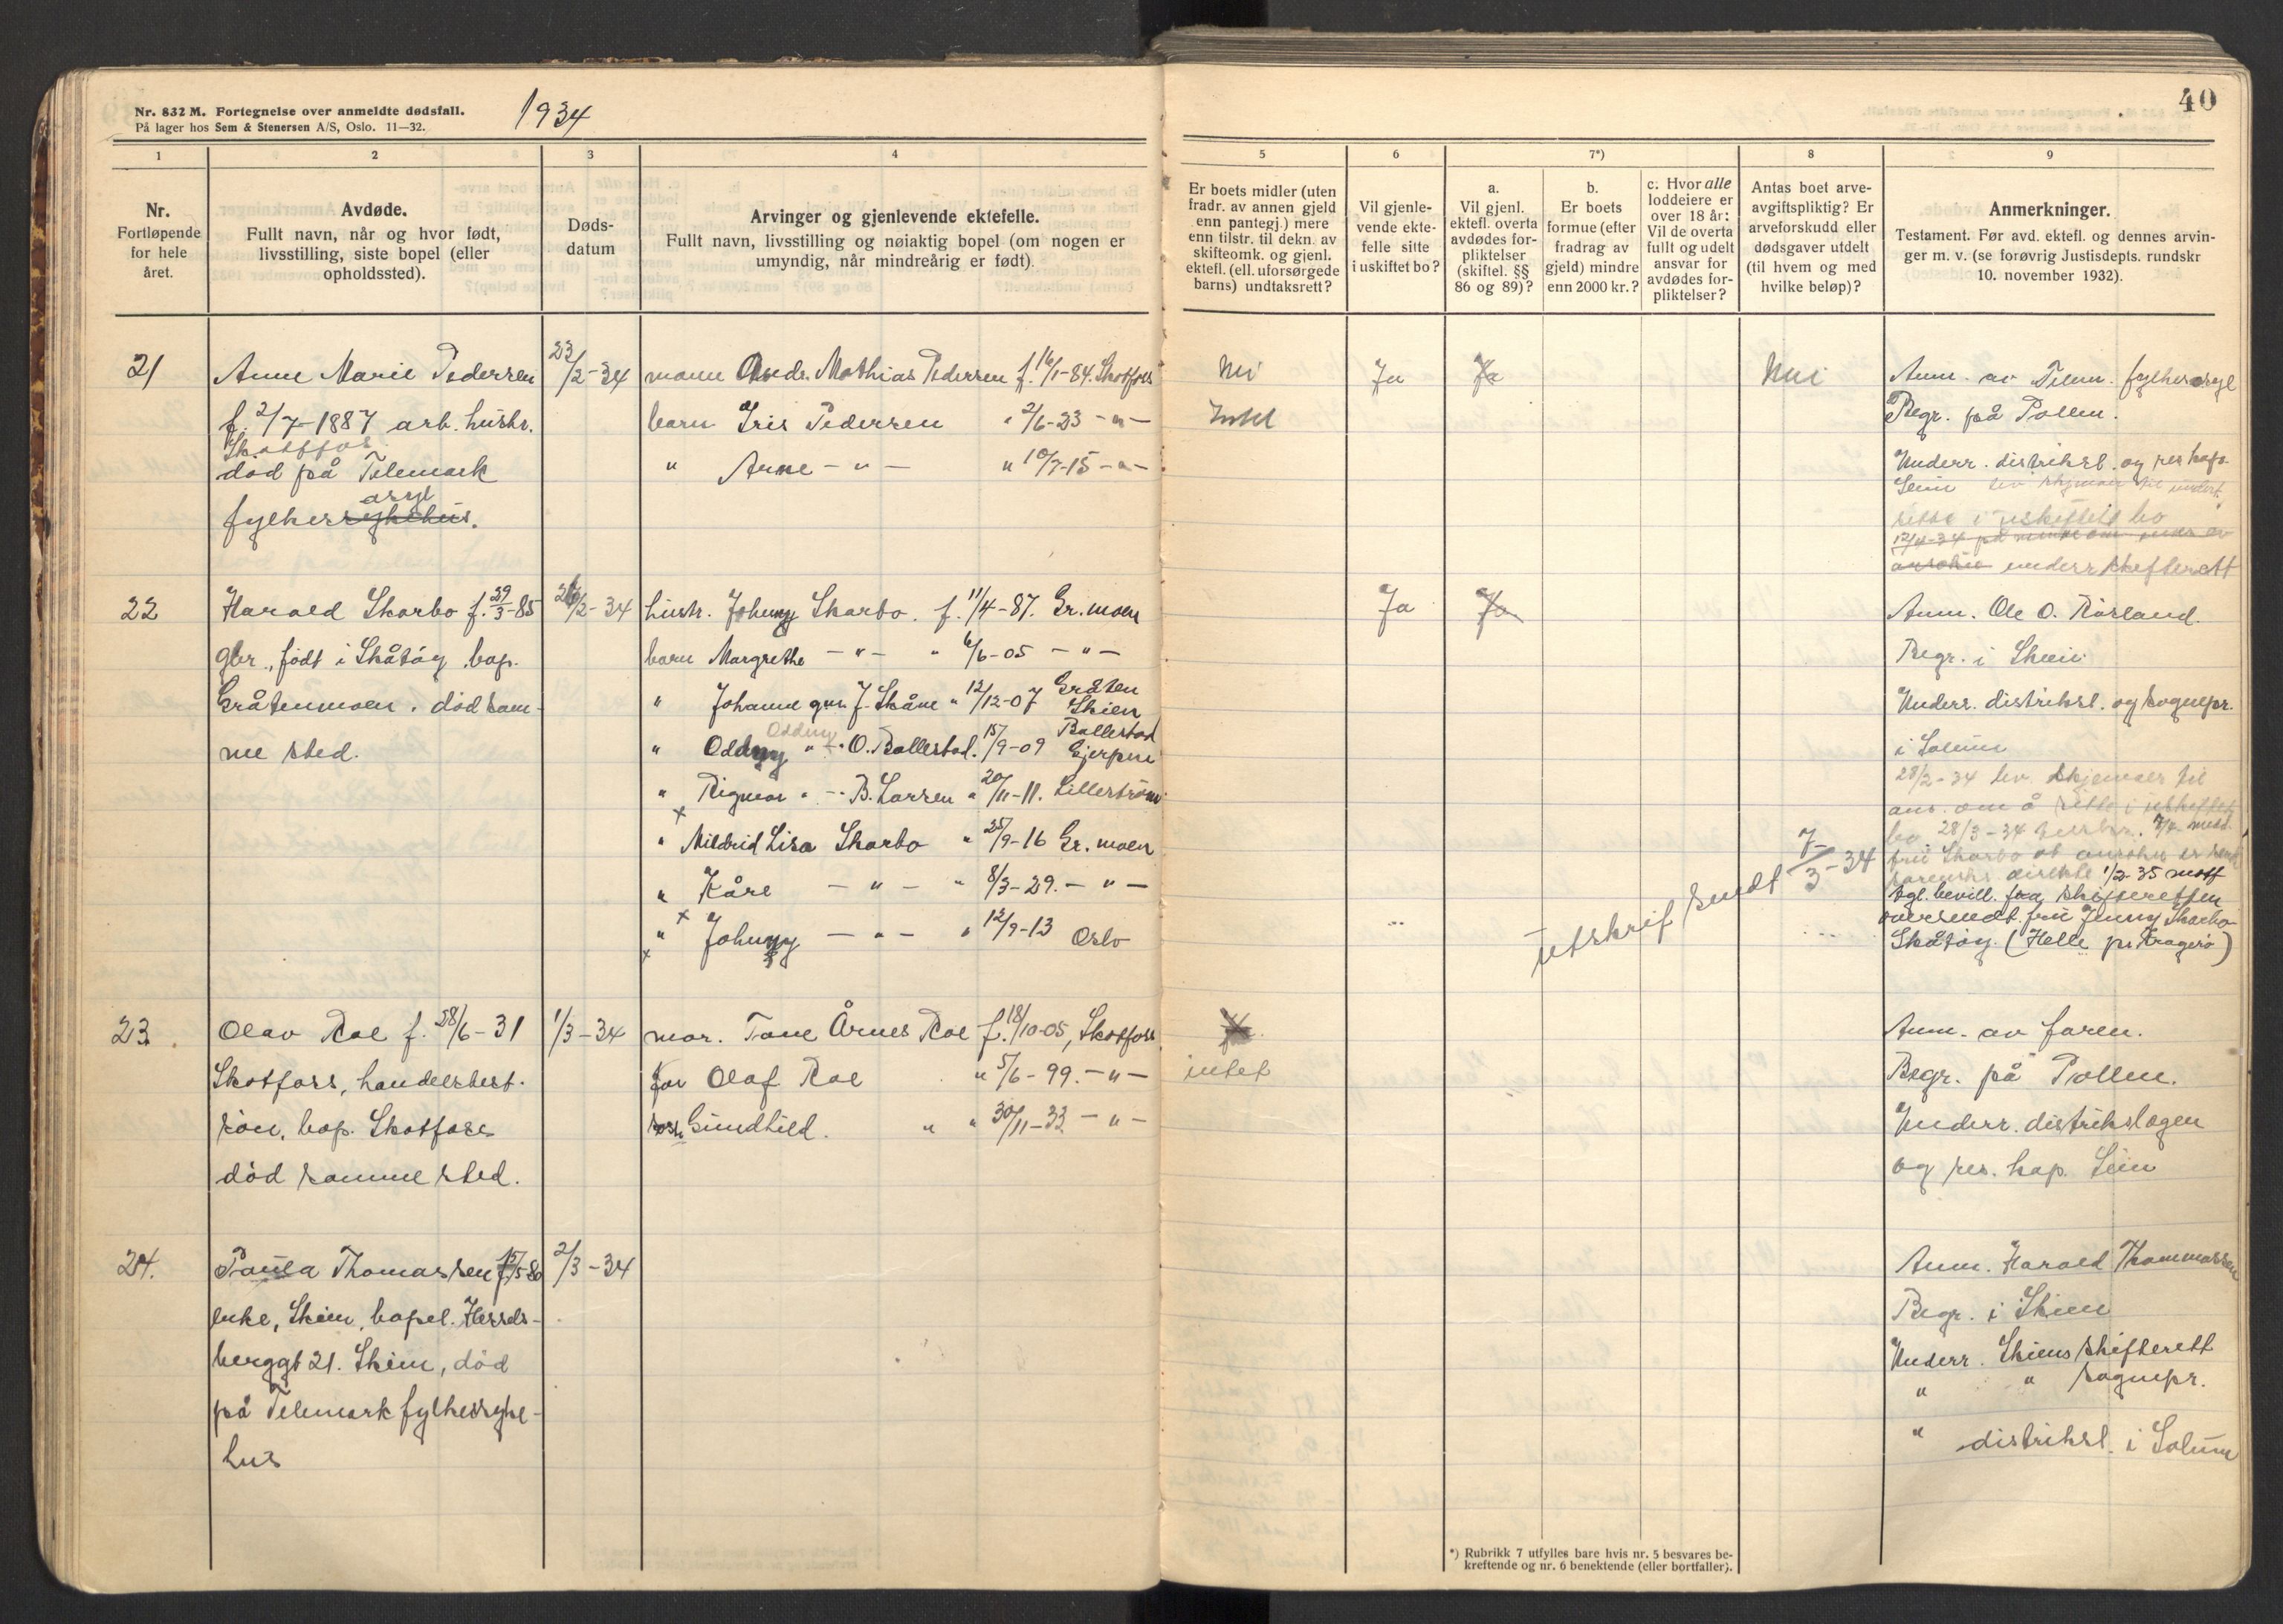 Nr. 832 M. Fortegnelse over anmeldte dødsfall.
På lager hos Sem & Stenersen A/S, Oslo. 11—32.
1934
1
2
3
4
Nr.
Fortløpende
for hele
året.
Avdøde.
Fullt navn, når og hvor født,
livsstilling, siste bopel (eller
opholdssted).
Døds-
datum
Arvinger og gjenlevende ektefelle.
Fullt navn, livsstilling og nøiaktig bopel (om nogen er
umyndig, når mindreårig er født).
21
Anne Marie Pedersen
f. 2/7-1887 arb. hustr.
Skotfos
død på Telemark
asyl
fylkessykehus.
23/2-34
mann Andr. Mathias Pedersen f. 16/1-84. Skotfoss
barn Iris Pedersen " 2/6-23 - " -
" Arne - " - " 10/7-15 - " -
22
Harald Skarbo f. 29/3-85
gbr., født i Skåtøy, bop.
Gråtenmoen. død sam-
me sted.
26/2-34
hustr. Johnny Skarbo. f. 11/4-87. Gr.moen
barn Margrethe - " - " 6/6-05 - " -
" Johanne gm. J. Skåne " 12/12-07 Gråten Skien
Oddny
" Oddny " - " O. Ballestad. 15/9-09 Ballestad Gjerpen
" Rigmor " - " B. Larsen " 20/11-11. Lillestrøm
" Mildrid Lisa Skarbo " 25/9-16 Gr. moen
" Kåre - " - " 8/3-29. - " -
" Johnny - " - " 12/9-13 Oslo
23.
Olav Roe f. 28/6-31
Skotfoss, handelsbest.
søn, bop. Skotfoss
død samme sted.
1/3-34
mor. Tone Årnes Roe f. 18/10-05, Skotfoss
far Olaf Roe " 5/6-99. - " -
søsk. Gundhild. " " 30/11-33 - " -
24.
Paula Thomassen f. 15/5-80
enke, Skien, bopel. Hessels-
berggt 21. Skien, død
på Telemark fylkessyke-
hus
2/3-34
40
5
6
7*)
8
9
Er boets midler (uten
fradr. av annen gjeld
enn pantegj.) mere
enn tilstr. til dekn. av
skifteomk. og gjenl.
ektefl. (ell. uforsørgede
barns) undtaksrett?
Vil gjenle-
vende ekte-
felle sitte
i uskiftet bo?
a.
Vil gjenl.
ektefl. overta
avdødes for-
pliktelser
(skiftel. §§
86 og 89)?
b.
Er boets
formue (efter
fradrag av
gjeld) mindre
enn 2000 kr.?
c. Hvor alle
loddeiere er
over 18 år:
Vil de overta
fullt og udelt
ansvar for
avdødes for-
pliktelser?
Antas boet arve-
avgiftspliktig? Er
arveforskudd eller
dødsgaver utdelt
(til hvem og med
hvilke beløp)?
Anmerkninger.
Testament. Før avd. ektefl. og dennes arvin-
ger m. v. (se forøvrig Justisdepts. rundskr
10. november 1932).
Nei
Intet
Ja
Ja
Nei
Anm. av Telem. fylkesasyl
Begr. på Pollen.
Underr. distriksl. og res kap.
sitte i uskiftett bo
12/4-34
underr skifterett
Ja
Ja
Anm. Ole O. Rørland.
Begr. i Skien
Underr. distriksl. og sognepr.
i Solum
28/2-34 lev. skjemaer til
ans. om å sitte i uskiftet
bo 28/3-34
1/2-35 mott
tgl. bevill. fra skifteretten
oversendt fru Jenny Skarbo
Skåtøy. (Helle pr. Kragerø)
utskrif sendt 7/3-34
Ja.
intet
Anm. av faren.
Begr. på Pollen.
Underr. distrikslegen
og res. kap. Lien
Anm. Harald Thommassen
Begr. i Skien
Underr. Skiens skifterett
" " sognepr.
" distriksl. i Solum
*) Rubrikk 7 utfylles bare hvis nr. 5 besvares be-
kreftende og nr. 6 benektende (eller bortfaller).